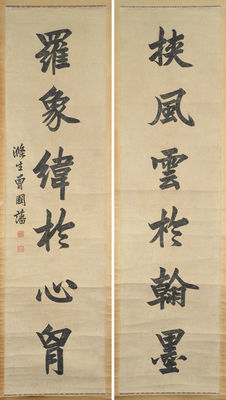 挾風雲於翰墨
羅象緯於心胷
滌生曾國藩